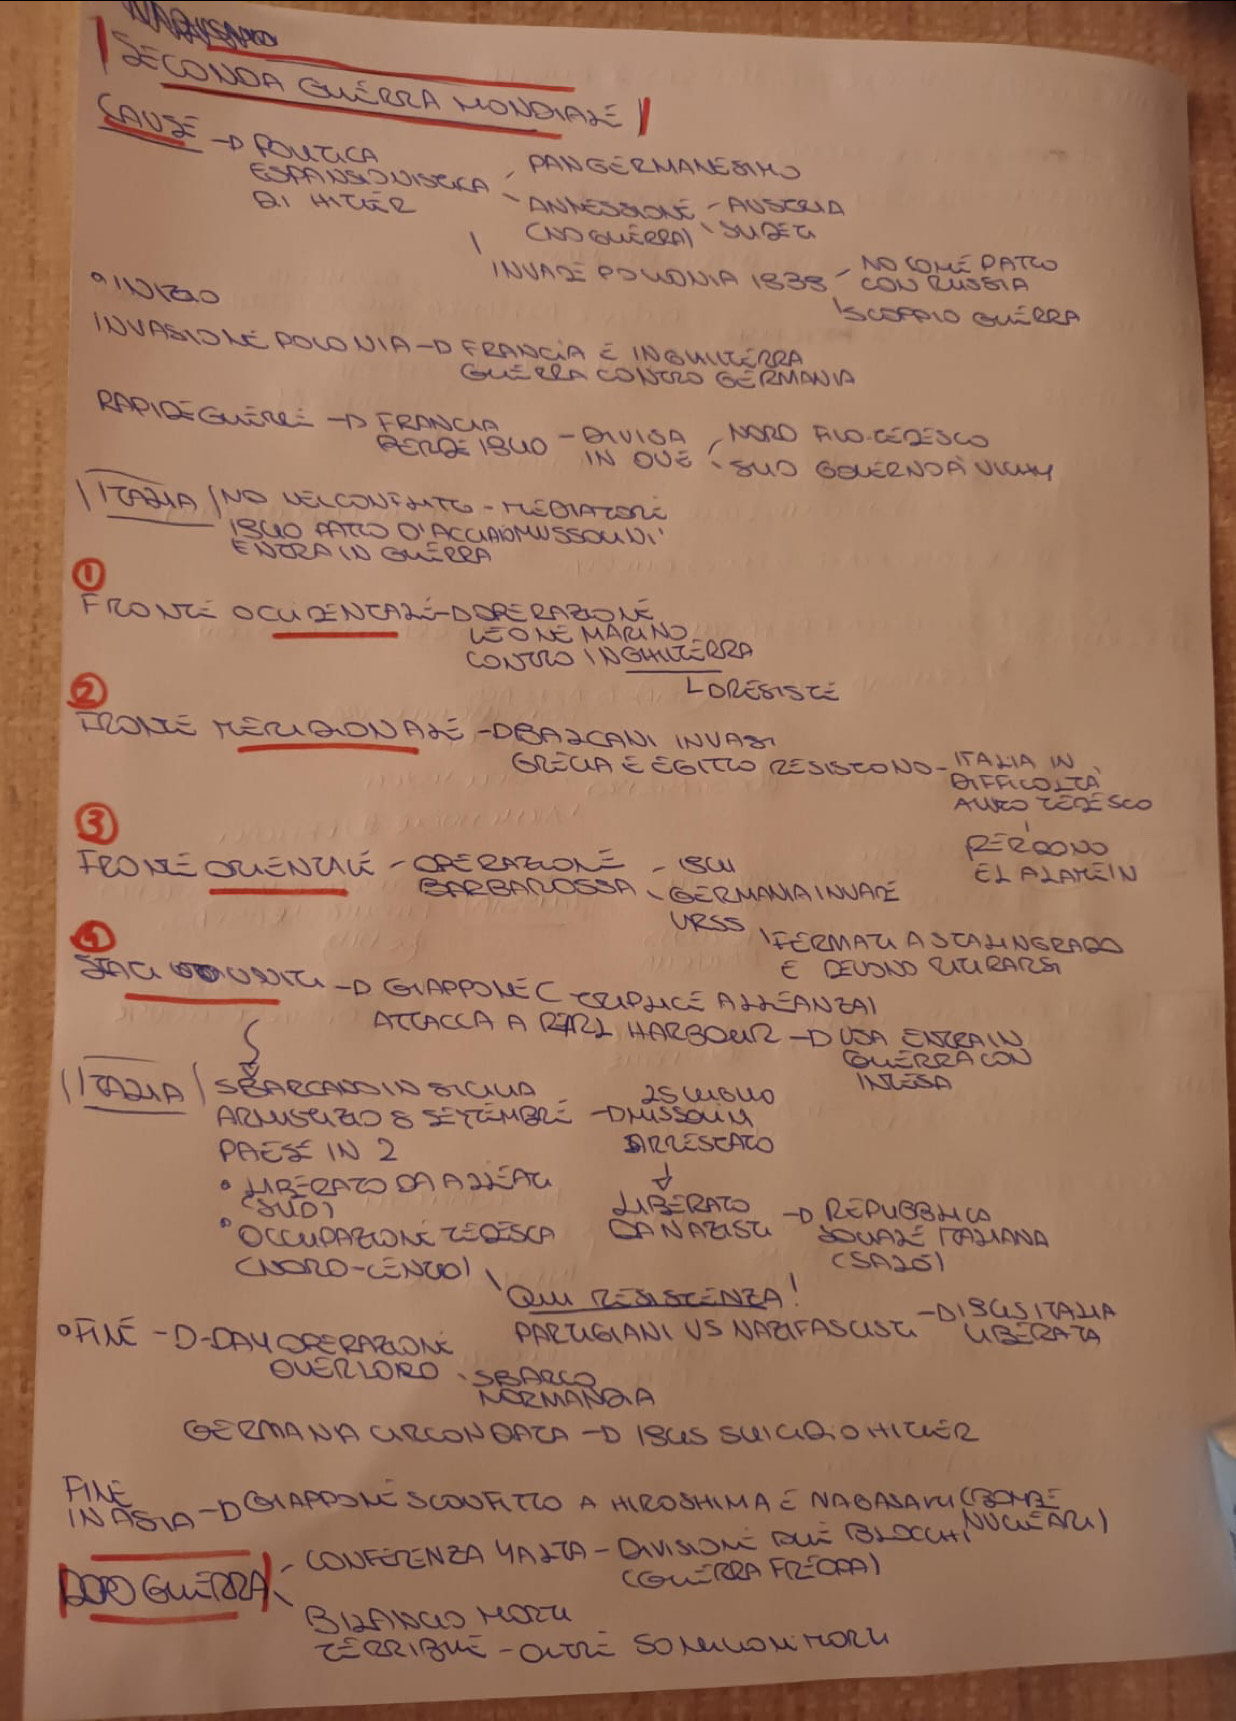 SECONDA GUERRA MONDIALE
CAUSE → POLITICA
ESPANSIONISTICA
DI HITLER
PANGERMANESIMO
ANNESSIONE - AUSTRIA
(NO GUERRA) SUDETI
INVADE POLONIA 1939 - NO COME PATTO
CON RUSSIA
SCOPPIO GUERRA
• INIZIO
INVASIONE POLONIA → FRANCIA E INGHILTERRA
GUERRA CONTRO GERMANIA
RAPIDE GUERRE → FRANCIA
PERDE 1940 - DIVISA
IN DUE
NORD FILO-TEDESCO
SUD GOVERNO DI VICHY
ITALIA NO NEL CONFLITTO - MEDIATORE
1940 PATTO D'ACCIAIO MUSSOLINI
ENTRA IN GUERRA
①
FRONTE OCCIDENTALE → OPERAZIONE
LEONE MARINO
CONTRO INGHILTERRA
↳ RESISTE
②
FRONTE MERIDIONALE → BALCANI INVASI
GRECIA E EGITTO RESISTONO - ITALIA IN
DIFFICOLTÀ
AIUTO TEDESCO
PERDONO
EL ALAMEIN
③
FRONTE ORIENTALE - OPERAZIONE
BARBAROSSA
- 1941
GERMANIA INVADE
URSS
FERMATI A STALINGRADO
E DEVONO RITIRARSI
④
STATI UNITI → GIAPPONE (TRIPLICE ALLEANZA)
ATTACCA A PEARL HARBOUR → USA ENTRA IN
GUERRA CON
INTESA
ITALIA SBARCANO IN SICILIA
ARMISTIZIO 8 SETTEMBRE
PAESE IN 2
• LIBERATO DA ALLEATI
(SUD)
• OCCUPAZIONE TEDESCA
(NORD-CENTRO)
25 LUGLIO
→ MUSSOLINI
ARRESTATO
↓
LIBERATO
DA NAZISTI
→ REPUBBLICA
SOCIALE ITALIANA
(SALÒ)
QUI RESISTENZA!
PARTIGIANI VS NAZIFASCISTI
→ 1945 ITALIA
LIBERATA
• FINE - D-DAY OPERAZIONE
OVERLORD
SBARCO
NORMANDIA
GERMANIA CIRCONDATA → 1945 SUICIDIO HITLER
FINE
IN ASIA → GIAPPONE SCONFITTO A HIROSHIMA E NAGASAKI (BOMBE
NUCLEARI)
DOPO GUERRA
- CONFERENZA YALTA - DIVISIONE DUE BLOCCHI
(GUERRA FREDDA)
BILANCIO MORTI
TERRIBILE - OLTRE 50 MILIONI MORTI